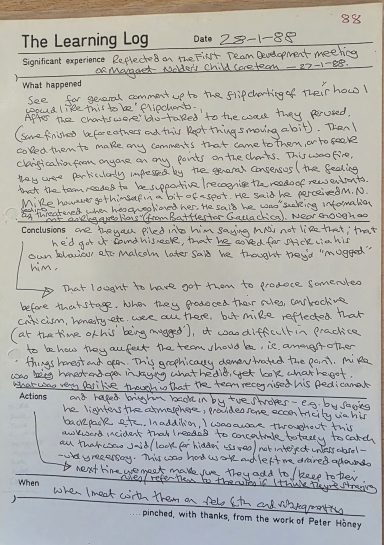 88
The Learning Log Date 28-1-88
Significant experience Reflected on the First Team Development meeting
of Margaret Child Care team - 27-1-88.
What happened
See for general comment up to the flipcharting of their "how I
would like this to be" flipcharts.
After the charts were blu-tacked to the wall they perused,
(some finished before others and this kept things moving a bit). Then I
asked them to make any comments that came to them, or to seek
clarification from anyone on any points on the charts. This was fine,
they were particularly impressed by the general consensus / the feeling
that the team needed to be supportive / recognise the needs of new recruits.
Mike however got himself in a bit of a spot. He said he perceived M.N.
as threatened when he questioned her. He said he was "seeking information
not asking questions" (from Battlestar Galactica). Near enough as
Conclusions one they all piled into him saying M.N.'s not like that, that
he'd got round his neck, that he asked for stick via his
own behaviour etc Malcolm later said he thought they'd "mugged"
him.
That I ought to have got them to produce some rules
before that stage. When they produced their rules, constructive
criticism, honesty etc. were all there, but Mike reflected that
(at the time of his being mugged), it was difficult in practice
to be how they all felt the team should be, i.e. amongst other
things honest and open. This graphically demonstrated the point. Mike
was being honest and open in saying what he did, yet look what he got.
What was very positive though was that the team recognised his predicament
Actions and helped bring him back in by +ve strokes - e.g. by saying
he lightens the atmosphere, provides some eccentricity via his
backpack etc. In addition, I was aware throughout this
awkward incident that I needed to concentrate totally to catch
all that was said / look for hidden issues / not interject unless absol-
-utely necessary. This was hard work and left me drained afterwards
Next time we meet make sure they add to / keep to their
rules / refer them to the rules if I think they're straying
When When I meet with them on Feb 6th and subsequently
....pinched, with thanks, from the work of Peter Honey